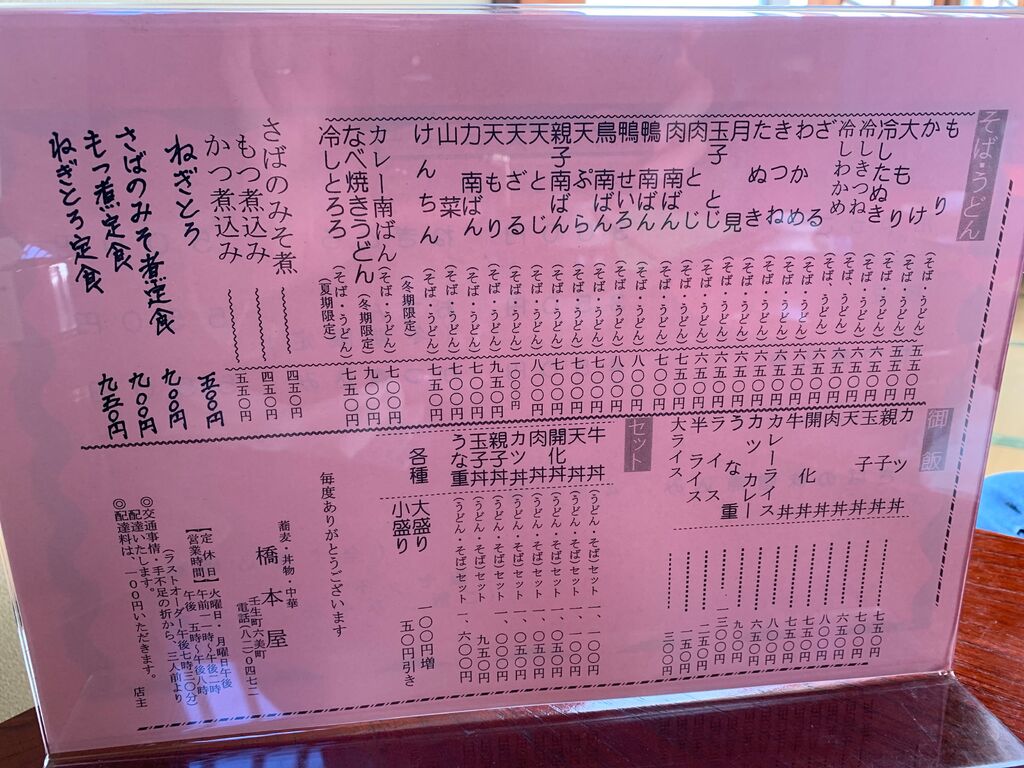 そば・うどん
もり（そば、うどん）五五〇円
かけ（そば、うどん）五五〇円
大もり（そば、うどん）六五〇円
冷したぬき（そば、うどん）六五〇円
冷しきつね（そば、うどん）六五〇円
冷しわかめ（そば、うどん）六五〇円
ざる（そば・うどん）六五〇円
わかめ（そば・うどん）六五〇円
きつね（そば・うどん）六五〇円
たぬき（そば・うどん）六五〇円
月見（そば・うどん）六五〇円
玉子とじ（そば・うどん）六五〇円
肉とじ（そば・うどん）七五〇円
肉南ばん（そば・うどん）七〇〇円
鴨南ばん（そば・うどん）八〇〇円
鴨せいろ（そば・うどん）八〇〇円
鳥南ばん（そば・うどん）七〇〇円
天ぷら（そば・うどん）七〇〇円
親子南ばん（そば・うどん）七〇〇円
天とじ（そば・うどん）八〇〇円
天ざる（そば・うどん）一〇〇〇円
天もり（そば・うどん）九五〇円
力南ばん（そば・うどん）七〇〇円
山菜（そば・うどん）七〇〇円
けんちん（そば・うどん）七五〇円
（冬期限定）
カレー南ばん（そば・うどん）七〇〇円
なべ焼きうどん（冬期限定）九〇〇円
冷しとろろ（そば・うどん）七五〇円
（夏期限定）
さばのみそ煮 四五〇円
もつ煮込み 四五〇円
かつ煮込み 五五〇円
ねぎとろ 五〇〇円
さばのみそ煮定食 九〇〇円
もつ煮定食 九〇〇円
ねぎとろ定食 九五〇円
御飯
カツ丼 七五〇円
親子丼 七〇〇円
玉子丼 六五〇円
天丼 七五〇円
肉丼 八〇〇円
開化丼 七五〇円
牛丼 七五〇円
カレーライス 六五〇円
カツカレー 九〇〇円
うな重 一、三〇〇円
ライス 二五〇円
半ライス 一五〇円
大ライス 三〇〇円
セット
牛丼（うどん・そば）セット 一、一〇〇円
天丼（うどん・そば）セット 一、一〇〇円
開化丼（うどん・そば）セット
肉丼（うどん・そば）セット
カツ丼（うどん・そば）セット
親子丼（うどん・そば）セット
玉子丼（うどん・そば）セット 九五〇円
うな重（うどん・そば）セット 一、六〇〇円
各種
大盛り 一〇〇円増
小盛り 五〇円引き
毎度ありがとうございます
蕎麦・丼物・中華
橋本屋
壬生町六美町
電話八二〇四七二
【定休日】火曜日・月曜日午後
【営業時間】午前一一時〜午後二時
午後五時〜午後八時
（ラストオーダー午後七時三〇分）
◎交通事情・手不足の折から、三人前より
配達いたします。
◎配達料は、一〇〇円いただきます。 店主